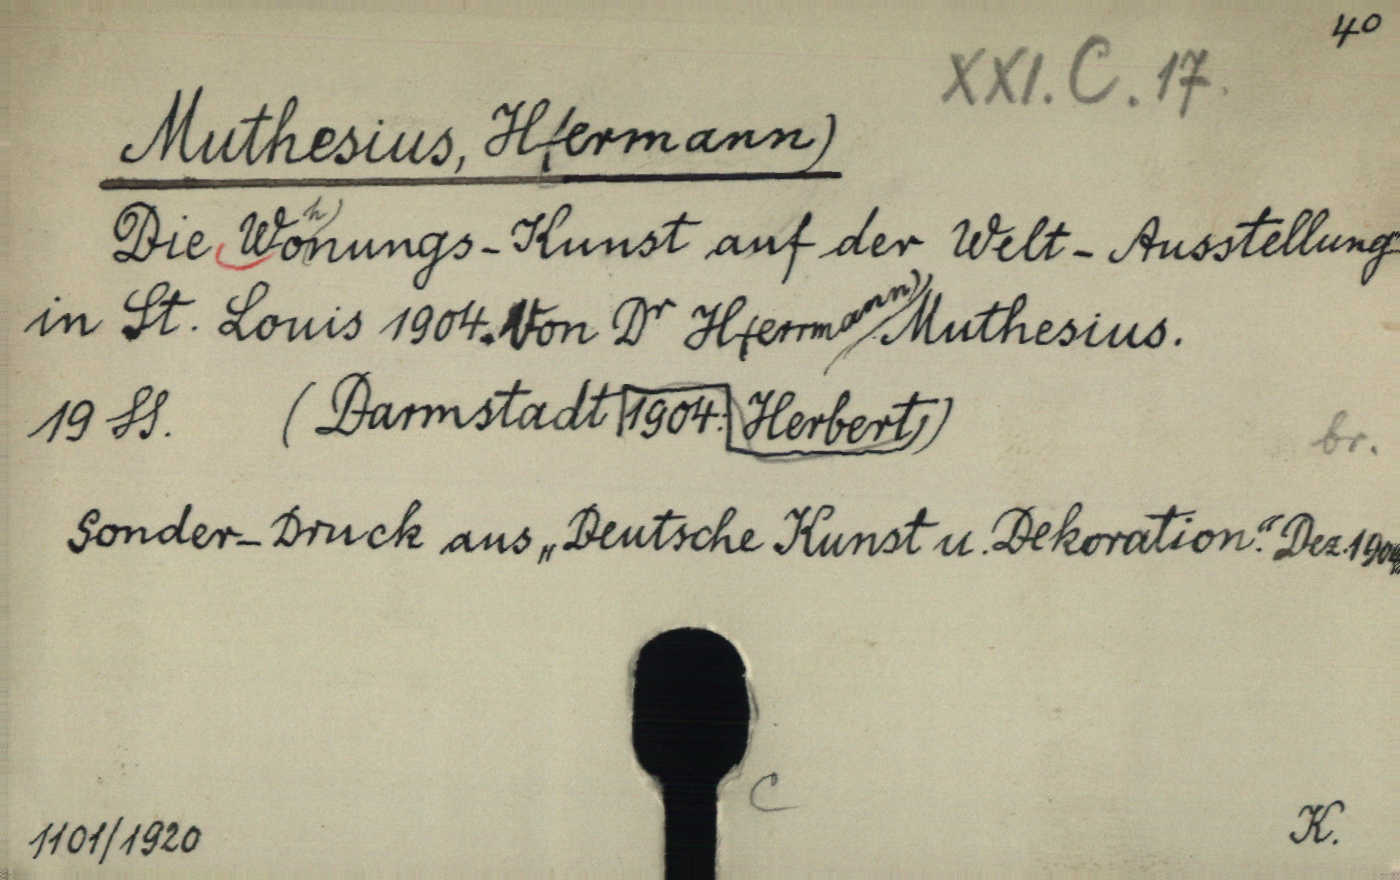 40
XXI. C. 17.
Muthesius, H(ermann)
Die Wo(h)nungs-Kunst auf der Welt-Ausstellung
in St. Louis 1904. Von Dr H(ermann) Muthesius.
19 SS. (Darmstadt 1904. Herbert,)
br.
Sonder-Druck aus „Deutsche Kunst u. Dekoration.“ Dez. 1904
C
1101/1920 K.